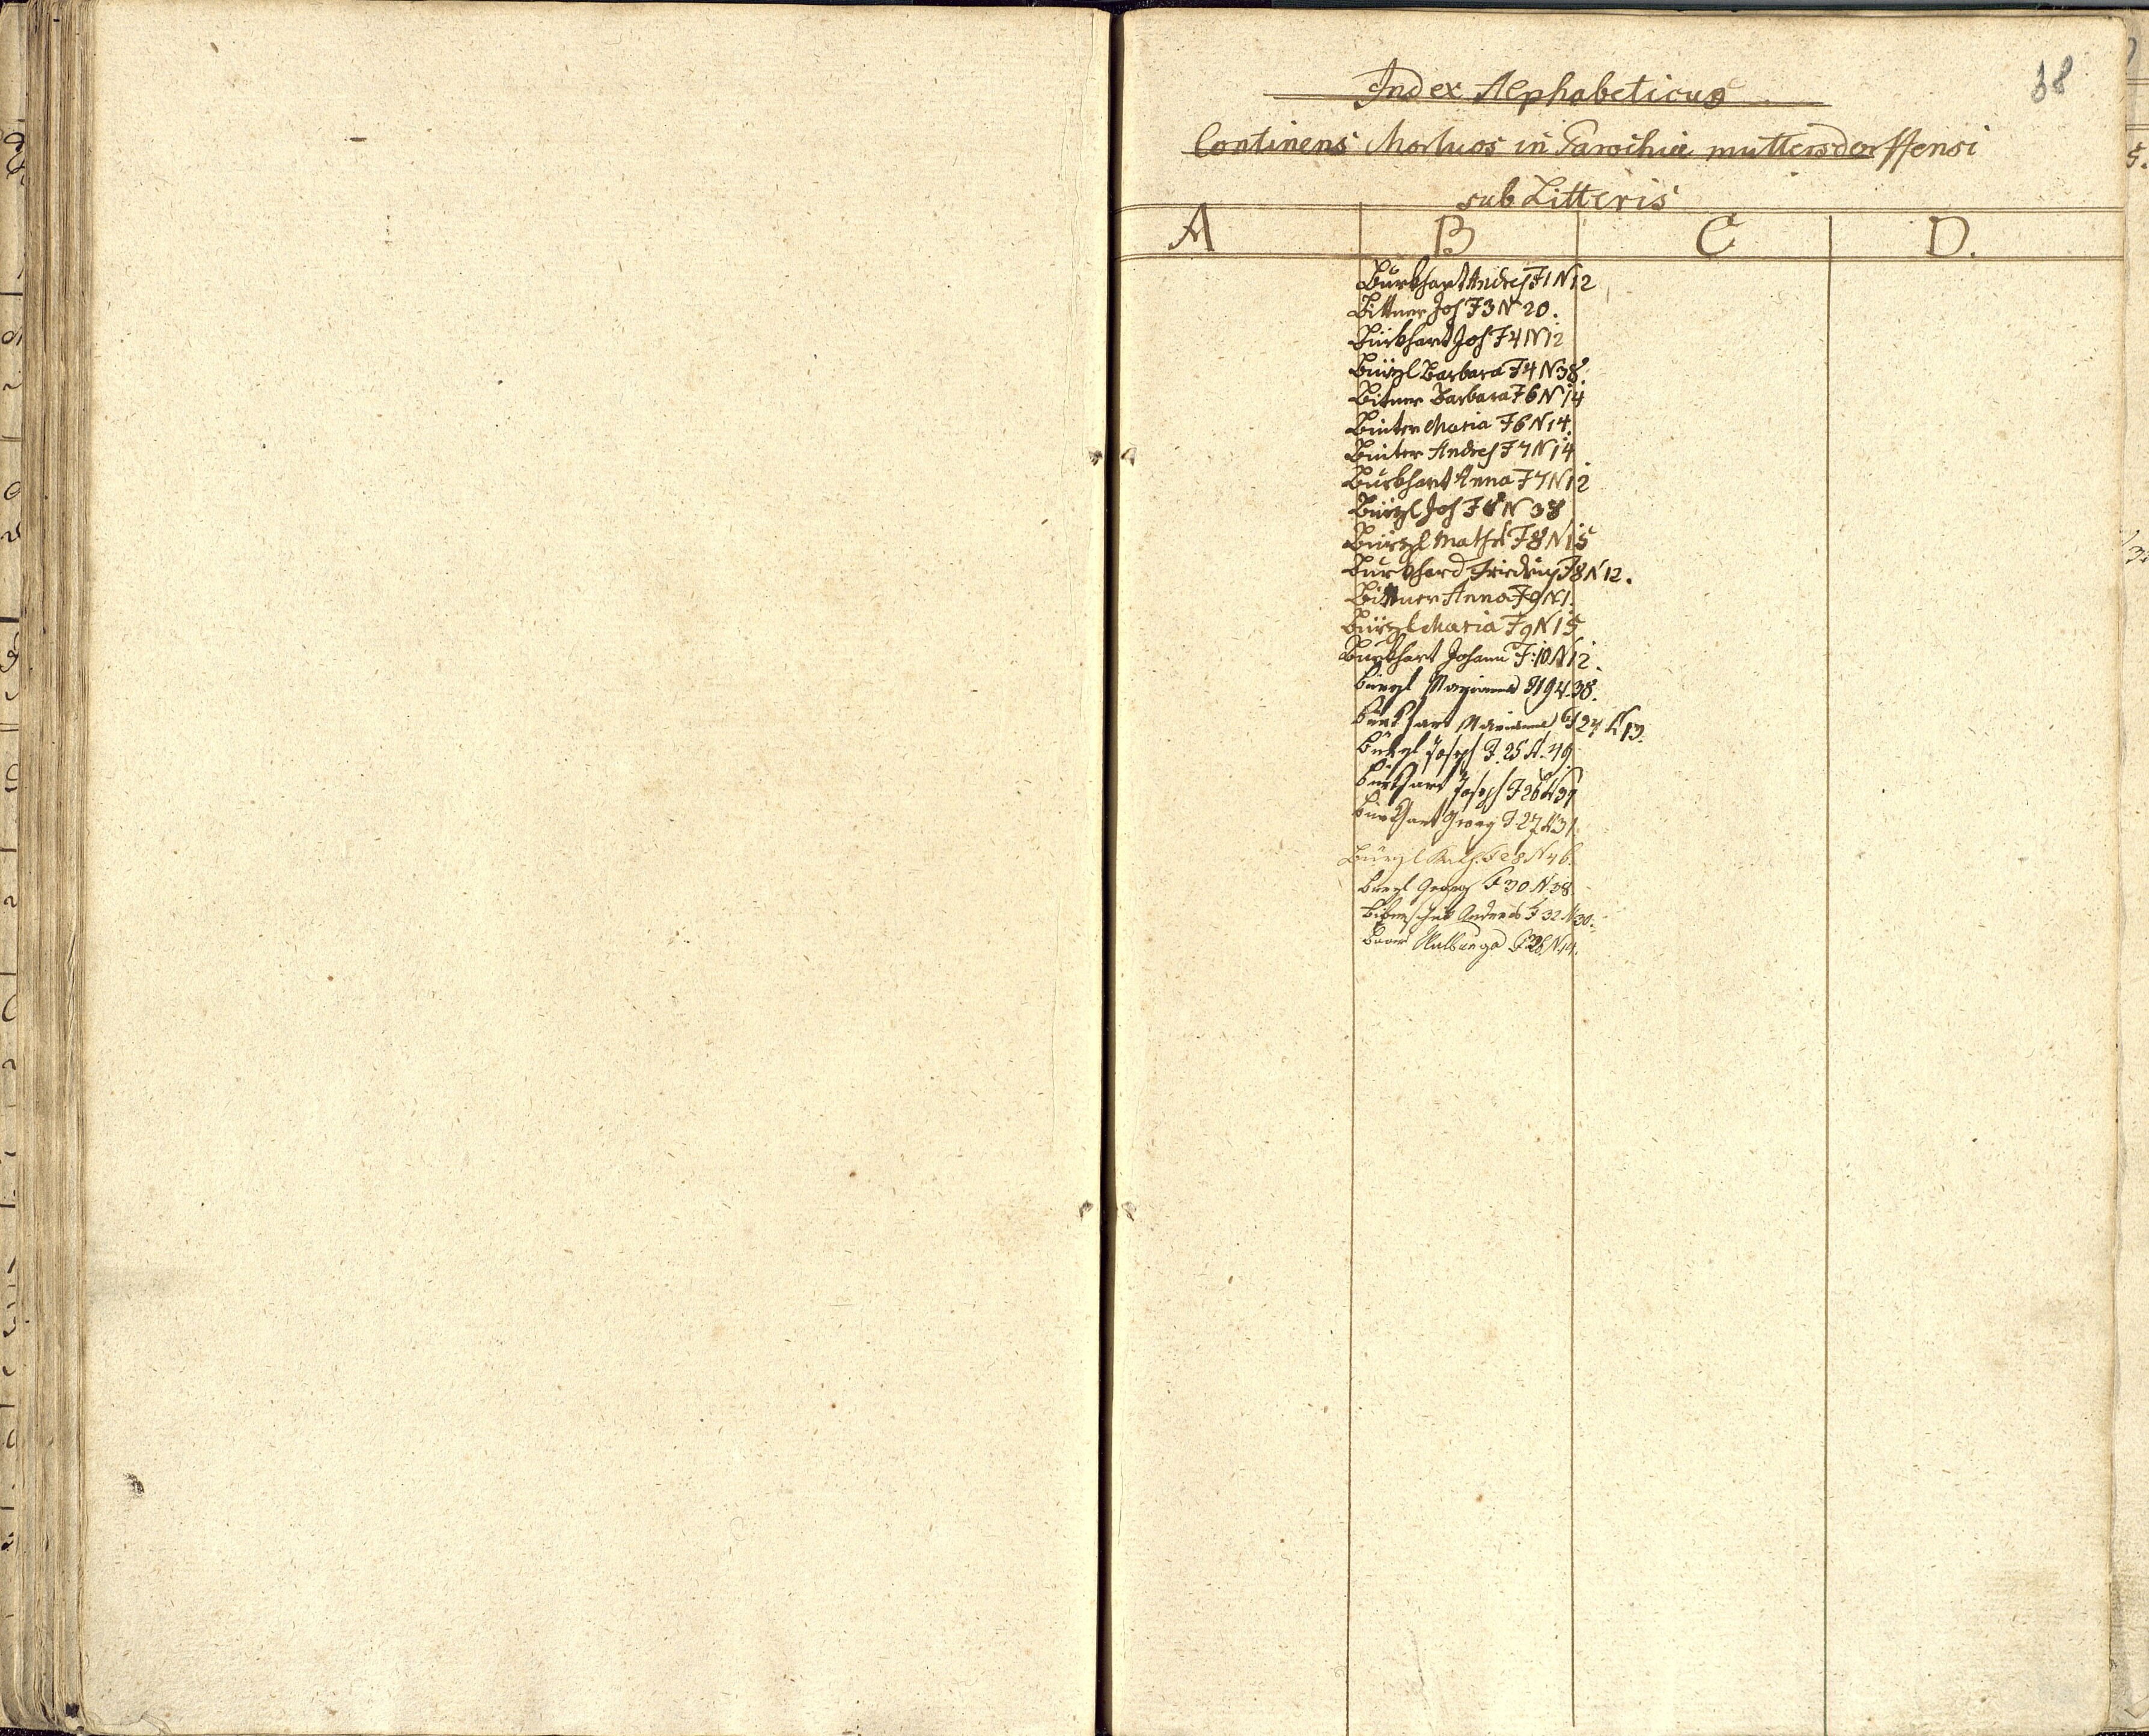 38
Index Alphabeticus
Continens Mortuos in Parochia muttersdorffensi
sub Litteris
A B C D.
Burkhart Andres F 1 N 12
Bittner Jos F 3 N 20.
Burkhart Jos F 4 N 12
Bürgl Barbara F 4 N 38.
Bitner Barbara F 6 N 14
Binter Maria F 6 N 14.
Binter Andres F 7 N 14
Burkhart Anna F 7 N 12
Bürgl Jos F 8 N 38
Bürgl Math F 8 N 15
Burkhard Friedrich F 8 N 12.
Bittner Anna F 9 N 1.
Bürgl Maria F 9 N 15
Burkhart Johann F: 10 N 12.
Bürgl 38.
Burkhart F 24 N 13.
Joseph F. 25 N. 49.
Burkhart Joseph F 26 N 37
Burkhart Georg F 27 N 31
Bürgl F 28 N 46.
Bürgl Georg F 30 N 38
Andreas F 32 N 30.
Walburga N 14.